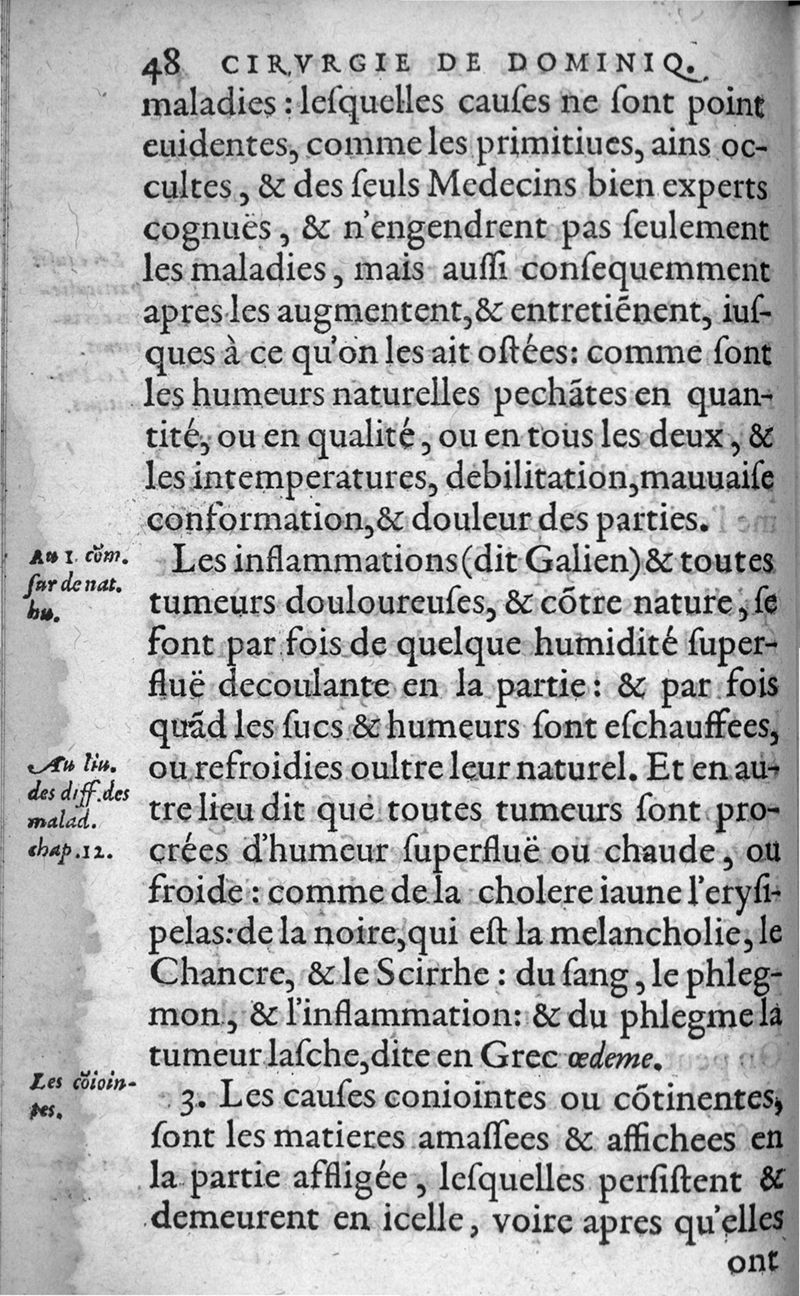 48 CIRVRGIE DE DOMINIQ.
maladies : leſquelles cauſes ne ſont point
euidentes, comme les primitiues, ains oc-
cultes, & des ſeuls Medecins bien experts
cognuës, & n'engendrent pas ſeulement
les maladies, mais auſſi conſequemment
apres les augmentent, & entretiẽnent, iuſ-
ques à ce qu'on les ait oſtées: comme ſont
les humeurs naturelles pechãtes en quan-
tité, ou en qualité, ou en tous les deux, &
les intemperatures, debilitation, mauuaiſe
conformation, & douleur des parties.
Au 1. cõm.
ſur de nat.
hu.
Les inflammations (dit Galien) & toutes
tumeurs douloureuſes, & cõtre nature, ſe
font par fois de quelque humidité ſuper-
fluë decoulante en la partie: & par fois
quãd les ſucs & humeurs ſont eſchauffees,
Au liu.
des diff. des
malad.
chap. 12.
ou refroidies oultre leur naturel. Et en au-
tre lieu dit que toutes tumeurs ſont pro-
crées d'humeur ſuperfluë ou chaude, ou
froide : comme de la cholere iaune l'eryſi-
pelas: de la noire, qui eſt la melancholie, le
Chancre, & le Scirrhe : du ſang, le phleg-
mon, & l'inflammation: & du phlegme la
tumeur laſche, dite en Grec œdeme.
Les cõioin-
tes.
3. Les cauſes coniointes ou cõtinentes,
ſont les matieres amaſſees & affichees en
la partie affligée, leſquelles perſiſtent &
demeurent en icelle, voire apres qu'elles
ont